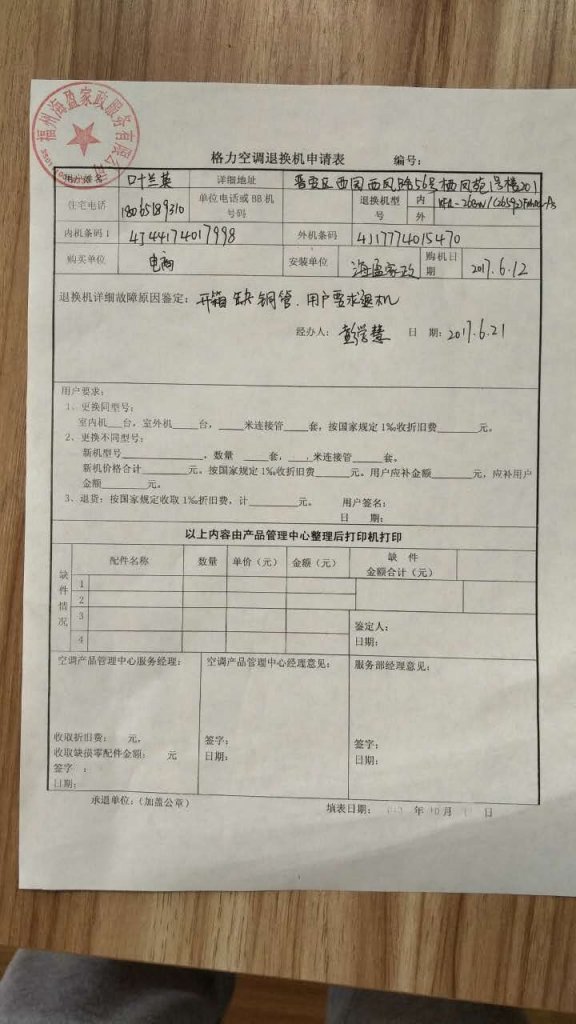 福州海盈家政服务有限公司
格力空调退换机申请表 编号:
用户姓名 叶兰英 详细地址 晋安区西园西凤路56号栖凤苑1号楼201
住宅电话 18065189310 单位电话或BB机号码 退换机型号 内 外
内机条码1 4J44174017998 外机条码 4J17774015470
购买单位 电商 安装单位 海盈家政 购机日期 2017.6.12
退换机详细故障原因鉴定: 开箱缺铜管.用户要求退机
经办人: 日 期: 2017.6.21
用户要求:
1、更换同型号:
室内机___台,室外机____台,_____米连接管____套,按国家规定1‰收折旧费_______元。
2、更换不同型号:
新机型号_______________,数量 ____套,____米连接管_____套。
新机价格合计________元。按国家规定1‰收折旧费_______元。用户应补金额_______元,应补用户
金额_______元。
3、退货:按国家规定收取1‰折旧费,计_______元。 用户签名:
日 期:
以上内容由产品管理中心整理后打印机打印
缺件情况 配件名称 数量 单价(元) 金额(元) 缺 件 金额合计(元)
1
2
3
4
鉴定人:
日期:
空调产品管理中心服务经理: 空调产品管理中心经理意见: 服务部经理意见:
收取折旧费: 元,
收取缺损零配件金额: 元
签字 :
日期:
签字:
日期:
签字:
日期:
承退单位:(加盖公章) 填表日期: 年 月 日